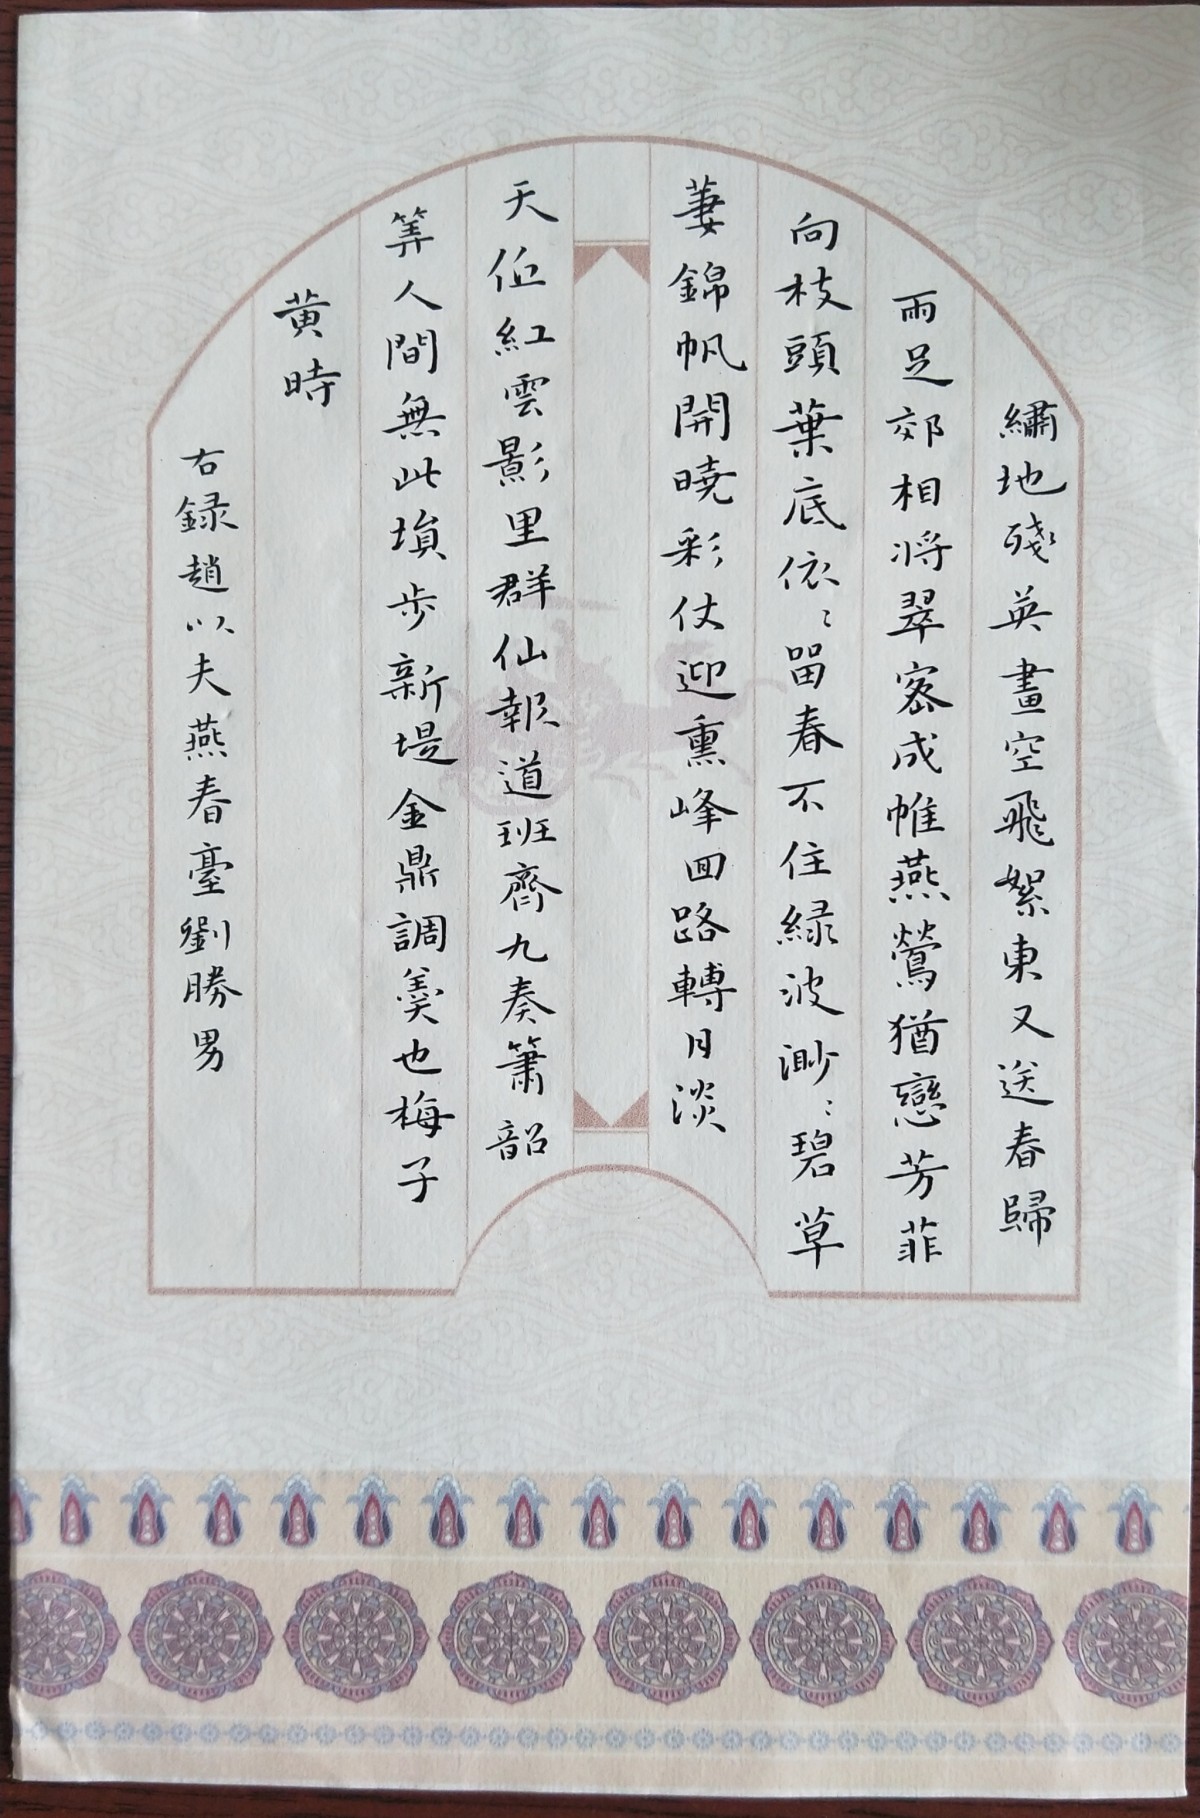 繡地殘英畫空飛絮東又送春歸
雨足郊相將翠密成帷燕鶯猶戀芳菲
向枝頭葉底依〻留春不住緑波渺〻碧草
萋錦帆開曉彩仗迎熏峰回路轉月淡
天低紅雲影里群仙報道班齊九奏簫韶
筭人間無此塤步新堤金鼎調羹也梅子
黄時
右録趙以夫燕春臺劉勝男